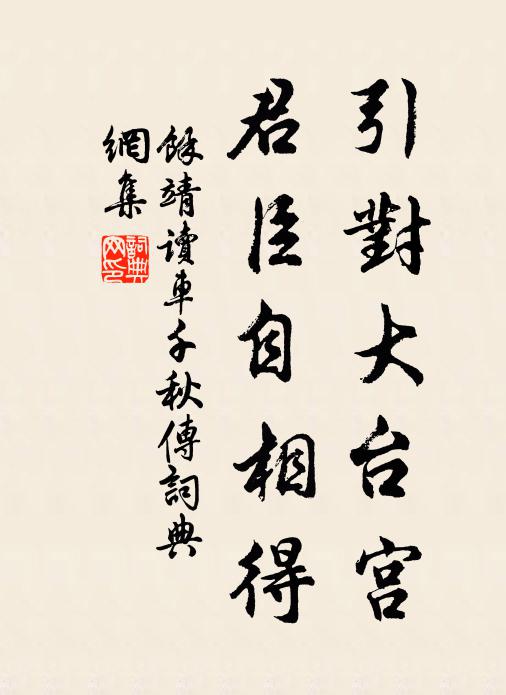 引對大台宮
君臣自相得
餘靖讀車千秋傳詞典
網集
詞典
网印